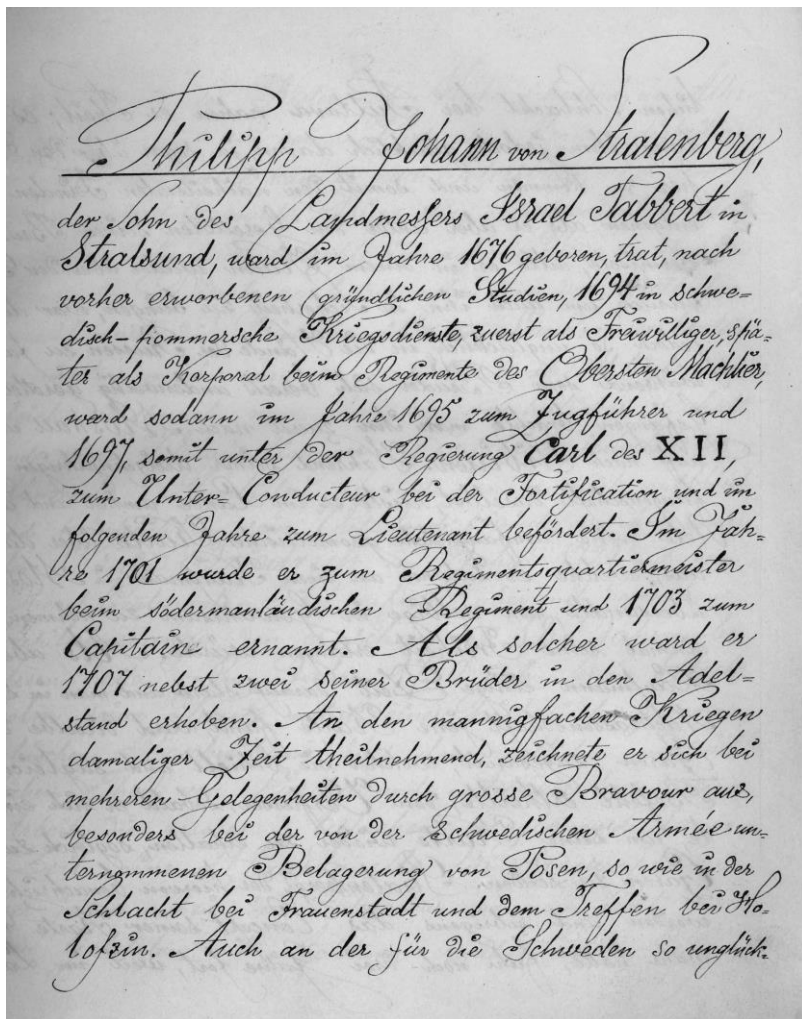 Philipp Johann von Stralenberg,
der Sohn des Landmessers Israel Tabbert in
Stralsund, ward im Jahre 1676 geboren, trat, nach
vorher erworbenen gründlichen Studien, 1694 in schwe-
disch-pommersche Kriegsdienste, zuerst als Freiwilliger, spä-
ter als Korporal beim Regimente des Obersten Machlier,
ward sodann im Jahre 1695 zum Zugführer und
1697, somit unter der Regierung Carl des XII,
zum Unter-Conducteur bei der Fortification und im
folgenden Jahre zum Lieutenant befördert. Im Jah-
re 1701 wurde er zum Regimentsquartiermeister
beim södermanländischen Regiment und 1703 zum
Capitain ernannt. Als solcher ward er
1707 nebst zwei seiner Brüder in den Adel-
stand erhoben. An den mannigfachen Kriegen
damaliger Zeit theilnehmend, zeichnete er sich bei
mehreren Gelegenheiten durch grosse Bravour aus,
besonders bei der von der schwedischen Armée un-
ternommenen Belagerung von Posen, so wie in der
Schlacht bei Frauenstadt und dem Treffen bei Ho-
lofzin. Auch an der für die Schweden so unglück-